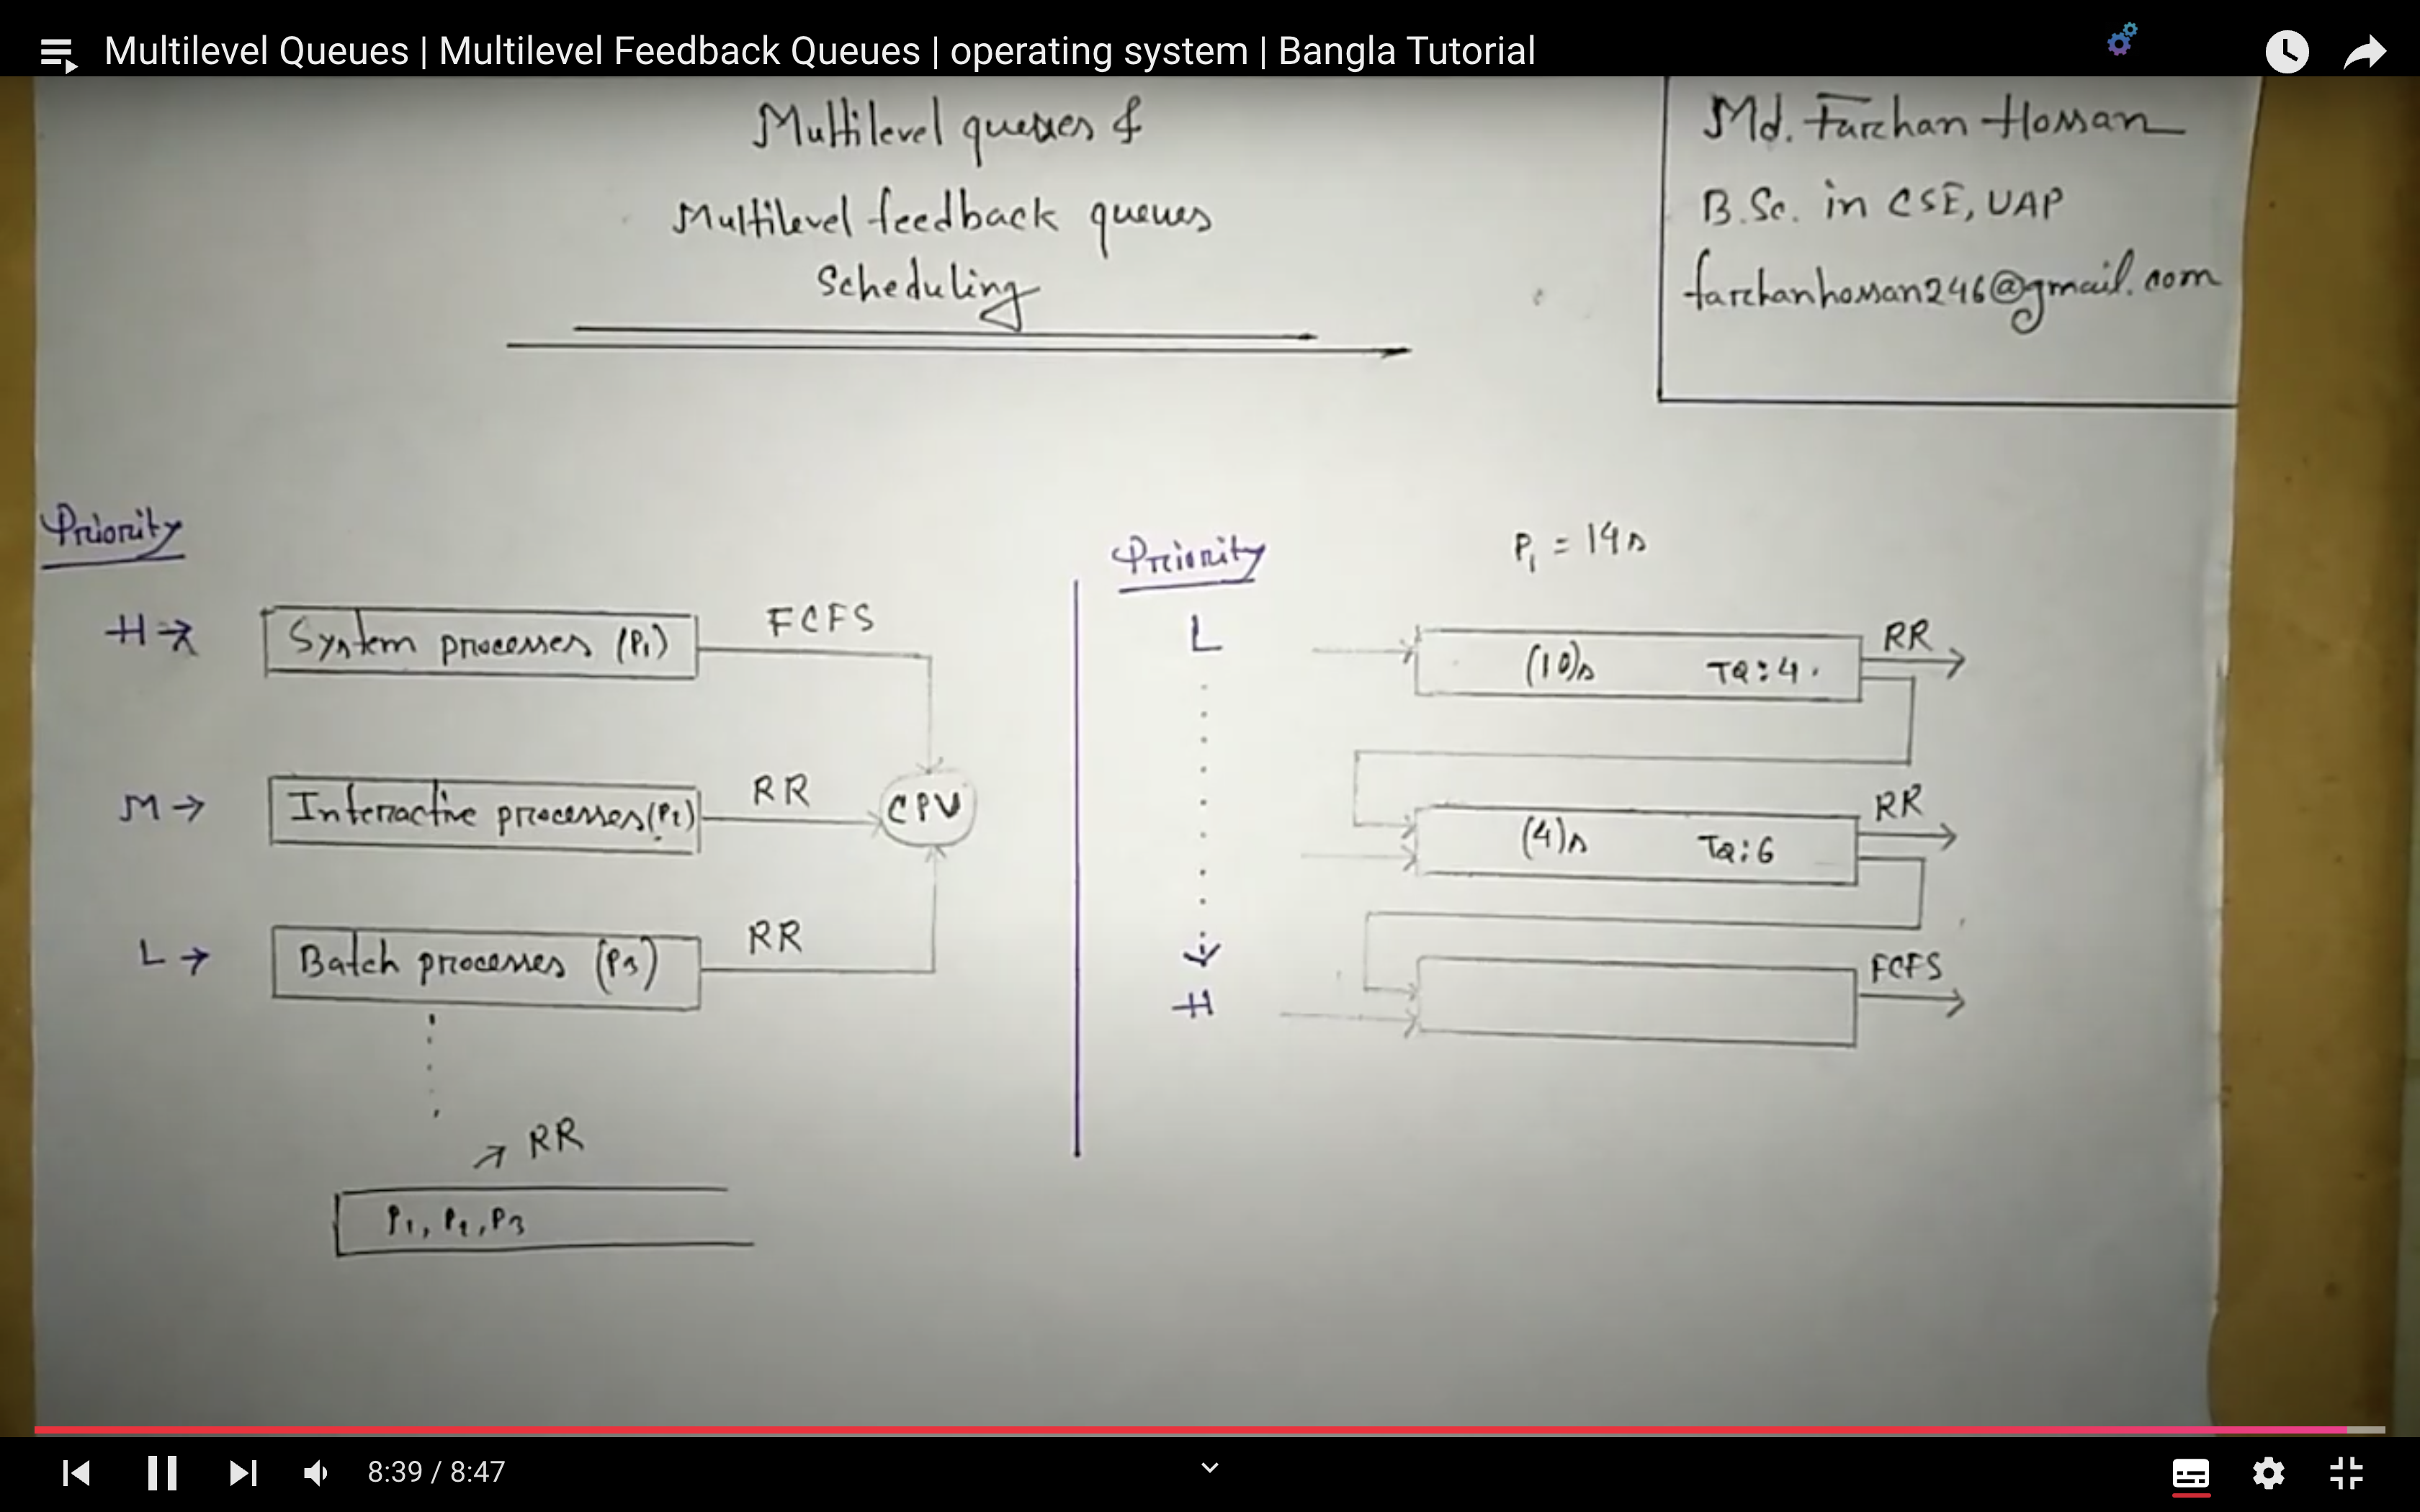 Multilevel Queues | Multilevel Feedback Queues | operating system | Bangla Tutorial
Multilevel queues &
Multilevel feedback queues
Scheduling
Md. Farhan Hossan
B.Sc. in CSE, UAP
farhanhossan246@gmail.com
Priority
H →
System processes (P1)
FCFS
M →
Interactive processes (P2)
RR
CPU
L →
Batch processes (P3)
RR
RR
P1, P2, P3
Priority
P1 = 14s
L
(10)s TQ: 4
RR
(4)s TQ: 6
RR
H
FCFS
8:39 / 8:47